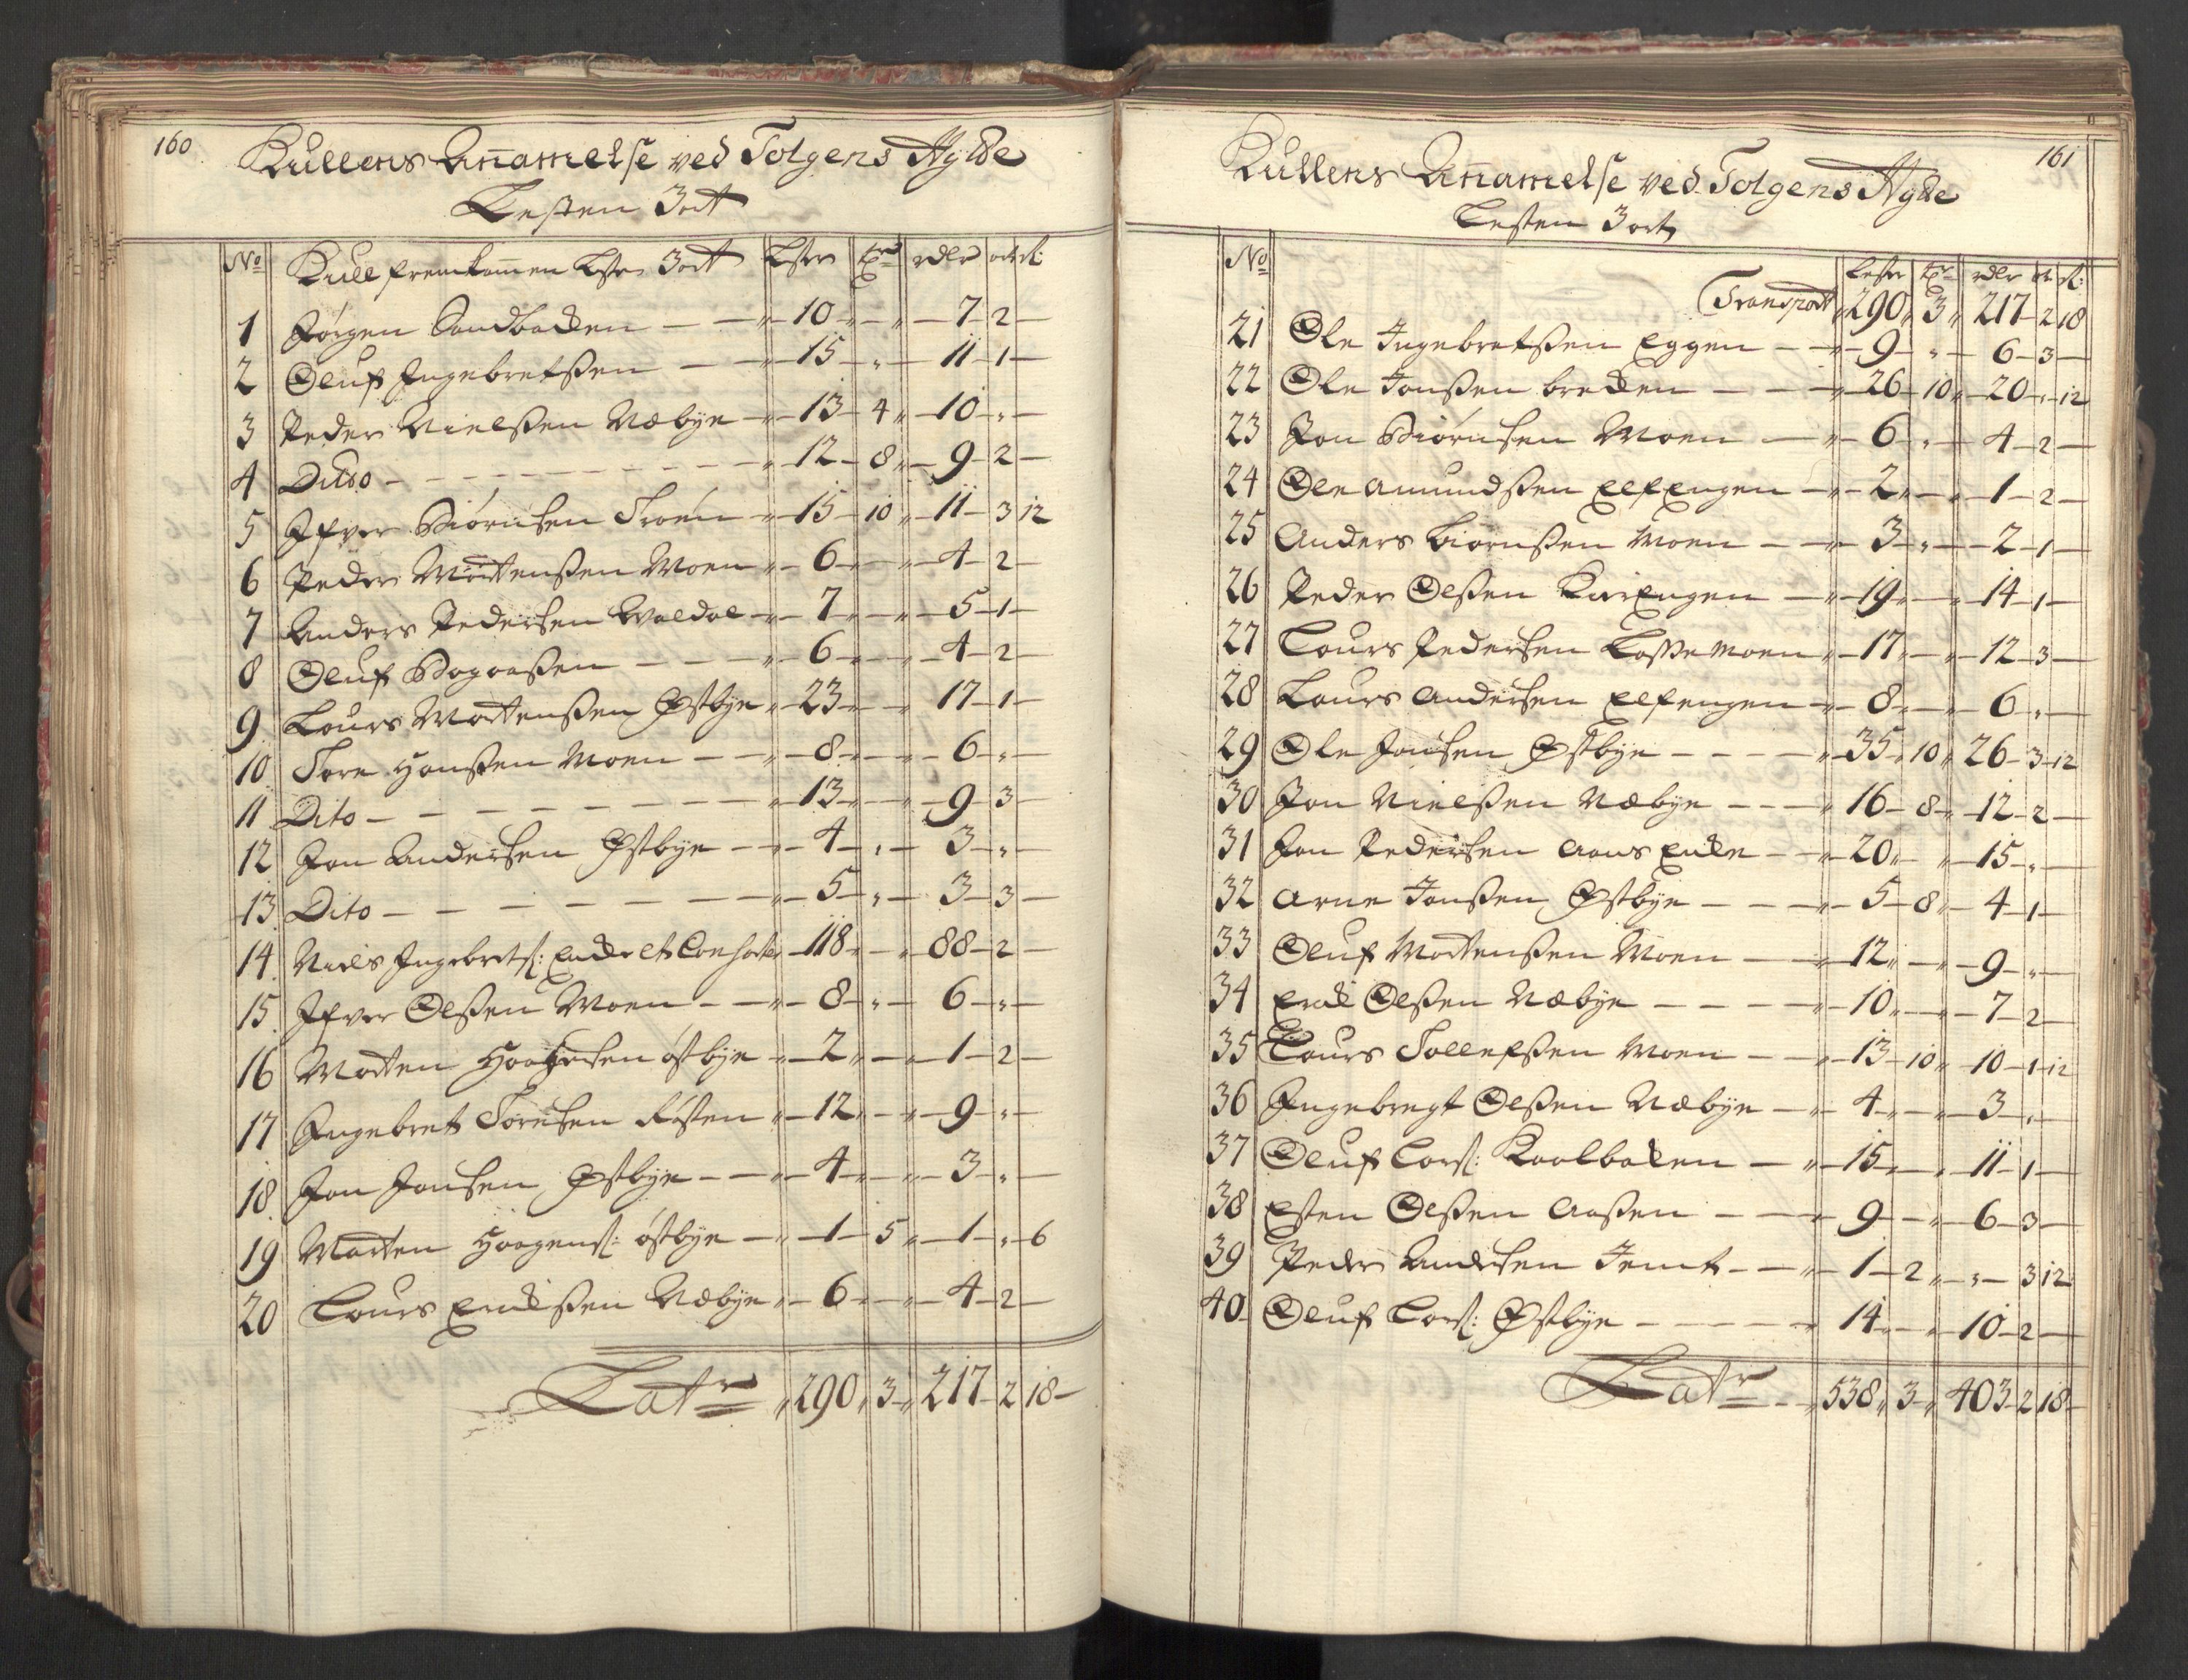 160
Kullens Anamelse ved Tolgens Hytte
Lesten 3 ort
No Kull fremkommen Lester 3 ort Lester tr rdlr ort s:
1 Jørgen Sandbacken - - " - 10 - " - 7 - 2 -
2 Oluf Ingebretssen - " - 15 - " - 11 - 1 -
3 Peder Nielssen Næbye - " - 13 - 4 " - 10 - " -
4 Ditto - - - - - - - " - 12 - 8 " - 9 - 2 -
5 Ifver Biørnsen Troen - " - 15 - 10 " - 11 - 3 12
6 Peder Mortenssen Moen " - 6 - " - 4 - 2 -
7 Anders Pedersen Waldal - " - 7 - " - 5 - 1 -
8 Oluf - - - " - 6 - " - 4 - 2 -
9 Laurs Mortenssen Østbye " - 23 - " - 17 - 1 -
10 Tore Hanssen Moen - - " - 8 - " - 6 - " -
11 Dito - - - - - - - " - 13 - " - 9 - 3 -
12 Jon Andersen Østbye - - " - 4 - " - 3 - " -
13 Dito - - - - - - - " - 5 - " - 3 - 3 -
14 Niels Ingebretss: Ende et Consorter - 118 - " - 88 - 2 -
15 Ifver Olssen Moen - - " - 8 - " - 6 - " -
16 Morten østbye - " - 2 - " - 1 - 2 -
17 Ingebret Toresen Røsten " - 12 - " - 9 - " -
18 Jon Jonsen Østbye - - " - 4 - " - 3 - " -
19 Morten Haagens: østbye - " - 1 - 5 " - 1 - " - 6
20 Laurs Erichssen Næbye " - 6 - " - 4 - 2 -
Latr " 290 " 3 - " 217 - 2 18 -
161
Kullens Anamelse ved Tolgens Hytte
Lesten 3 ort
No Lester tr rdlr ort s:
Transport " 290 " 3 - 217 - 2 18
21 Ole Ingebretssen Eggen - " - 9 - " - 6 - 3 -
22 Ole Jonssen brecken - - " - 26 - 10 " - 20 - " - 12
23 Jon Biørnsen Moen - " - 6 - " - 4 - 2 -
24 Ole Amundssen Elfengen - " - 2 - " - 1 - 2 -
25 Anders Biørnssen Moen - - " - 3 - " - 2 - 1 -
26 Peder Olssen - " - 19 - " - 14 - 1 -
27 Laurs Pedersen Lossemoen " - 17 - " - 12 - 3 -
28 Laurs Andersen Elfengen - " - 8 - " - 6 " -
29 Ole Jonsen Østbye - - - " - 35 - 10 " 26 - 3 - 12
30 Jon Nielssen Næbye - - - " 16 - 8 - " - 12 - 2 -
31 Jon Pedersen - " - 20 " - 15 - " -
32 Arne Jonssen Østbye - - - " - 5 - 8 " - 4 - 1 -
33 Oluf Mortenssen Moen - " - 12 - " - 9 - " -
34 Erich Olssen Næbye - - - - " - 10 - " - 7 - 2 -
35 Laurs Tollefssen Moen - - " - 13 - 10 " - 10 - 1 - 12
36 Ingebregt Olssen Næbye - " - 4 - " - 3 - " -
37 Oluf Lars: Kaalbacken - " - 15 - " - 11 - 1 -
38 Esten Olssen Aassen - - " - 9 - " - 6 - 3 -
39 Peder Andersen Jemt - - " - 1 - 2 - " - " - 3 12
40 Oluf Lars: Østbye - - - - " 14 - " - 10 - 2 -
Latr - - " 538 " 3 - " 403 - 2 18 -